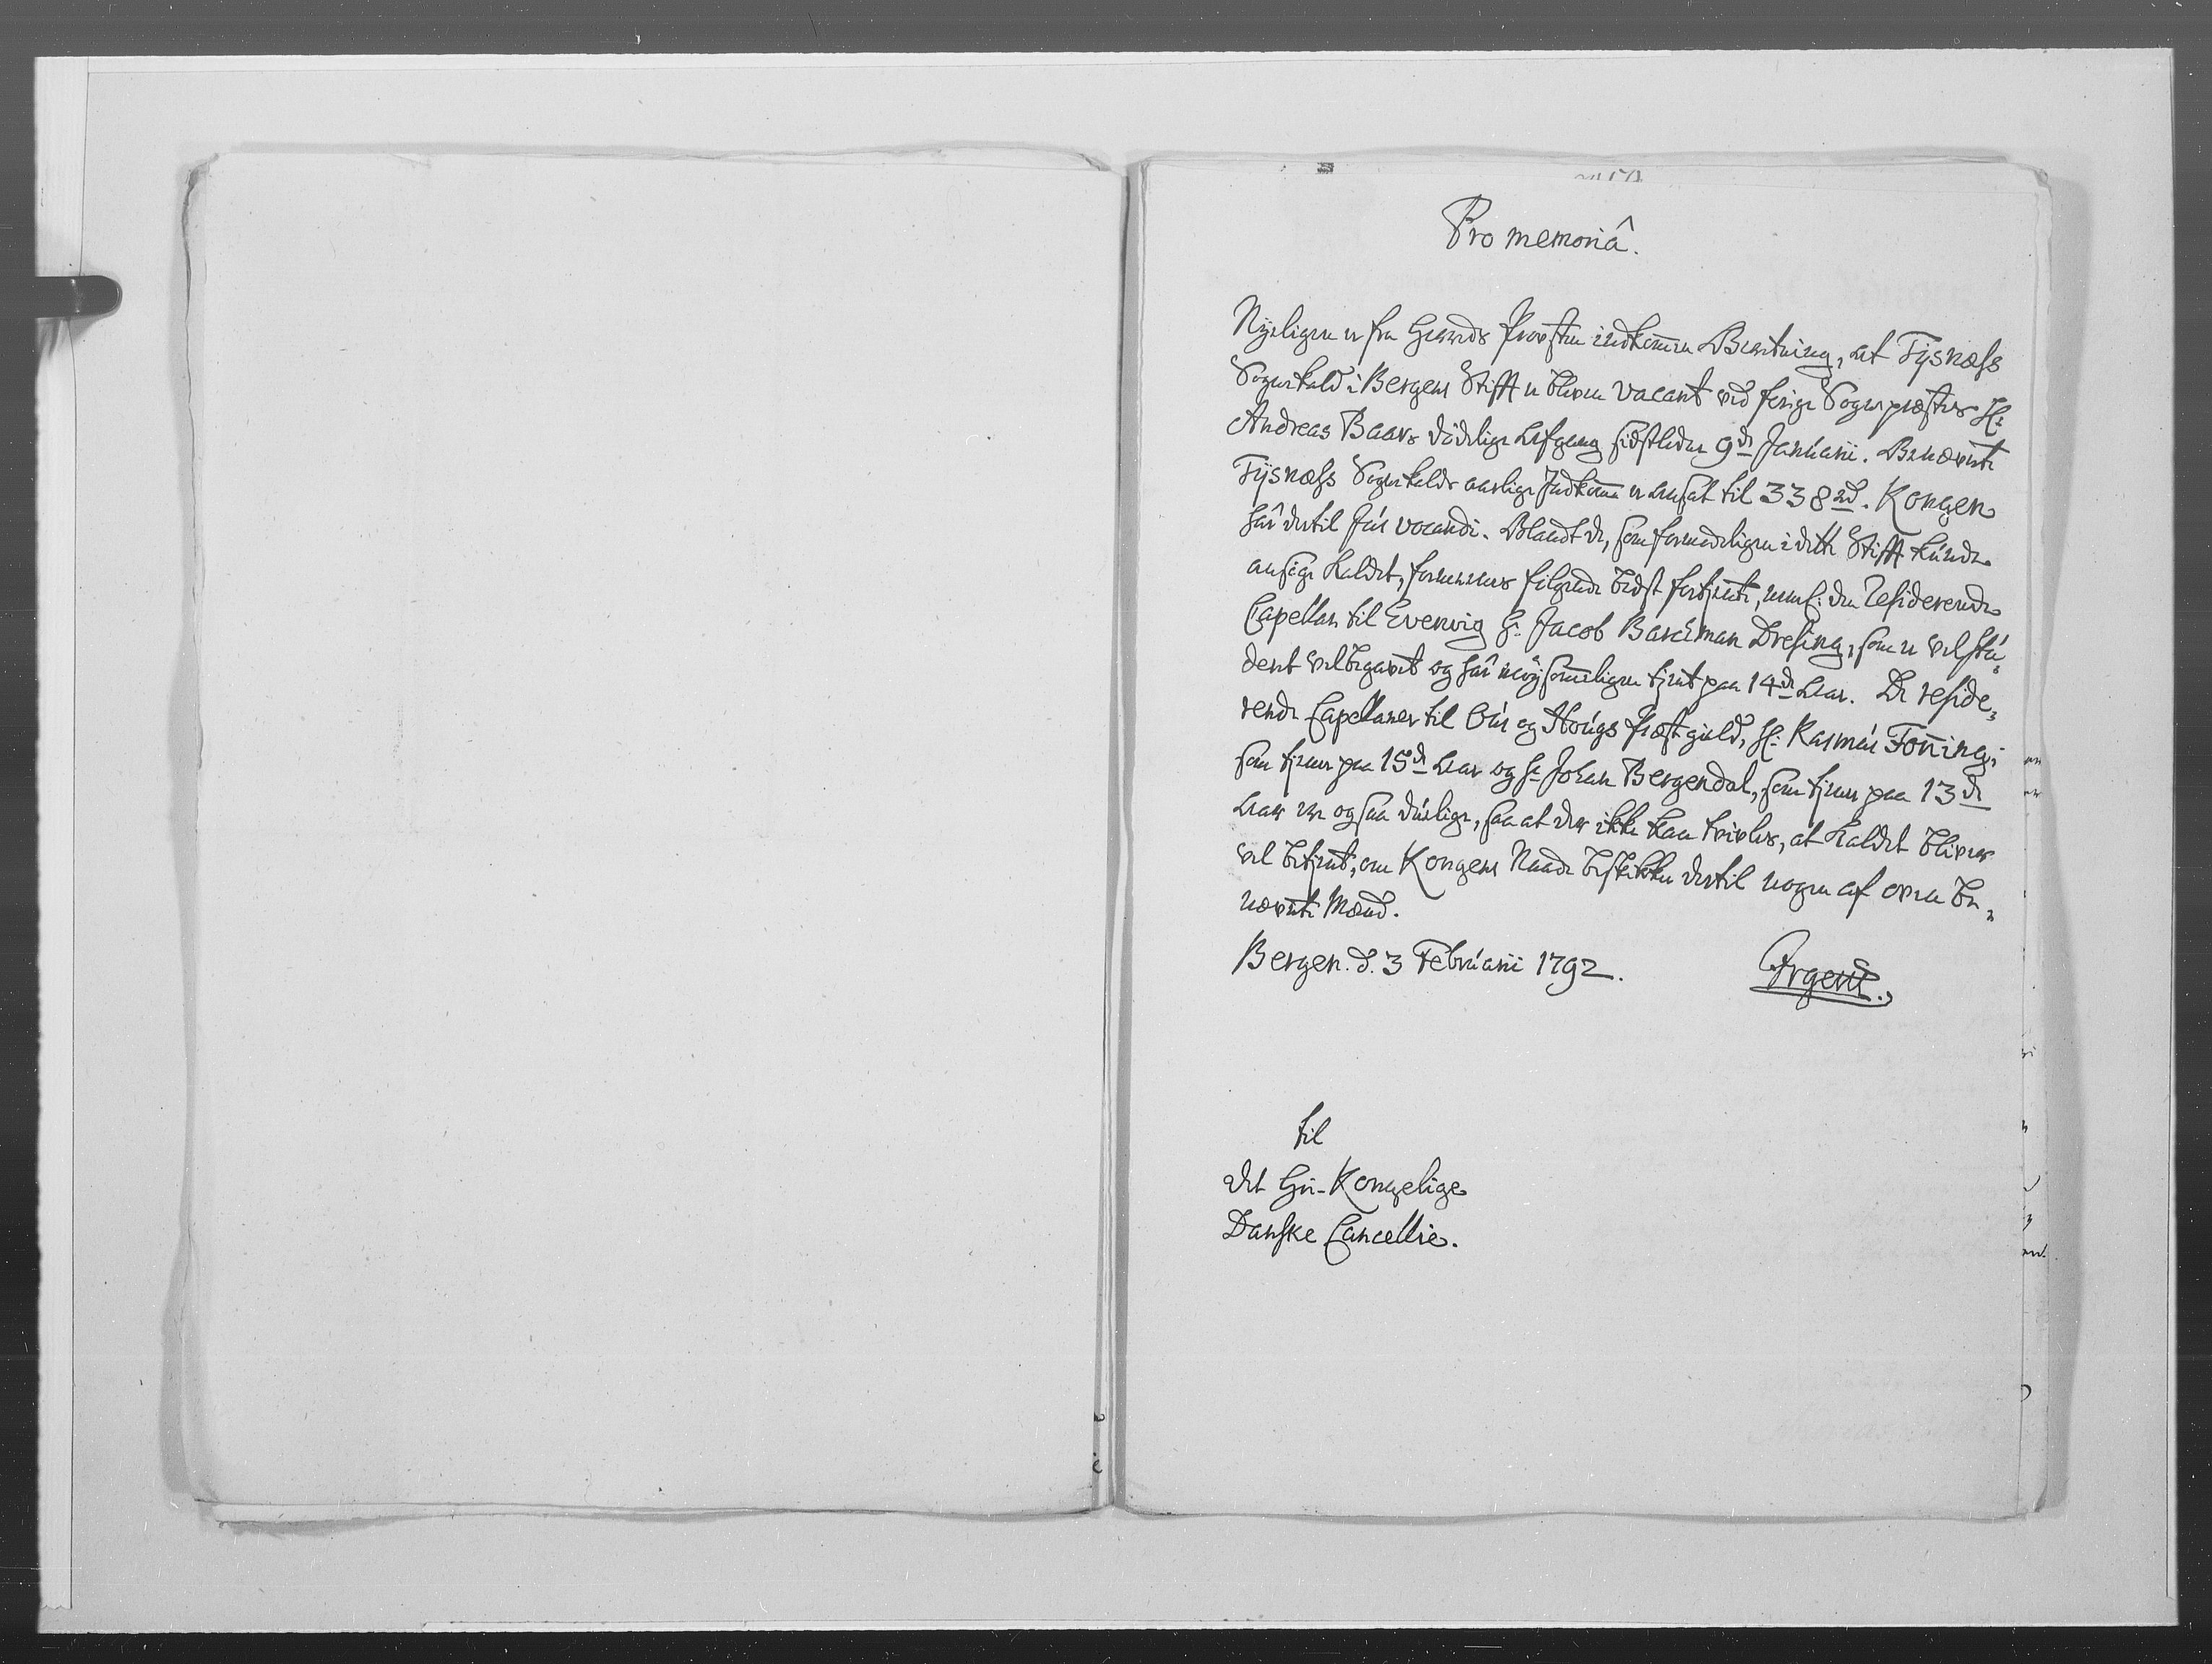 Pro memoriâ.
Nyeligen er fra Herreds Provsten indkom̅en Beretning, at Tysnæss
Sognekald i Bergens Stift er bleven vacant ved forige Sognepræstes Hr:
Andreas Baars dödelige Afgang sidstleden 9de Januarii. Benævnte
Tysnæss Sognekalds aarlige Indkom̅e er ansat til 338 rd. Kongen
har dertil Jus vocandi. Blandt de, som formodeligen i dette Stift kunde
ansøge Kaldet, formenes følgende bedst fortiente, neml: den Residerende
Capellan til Evenvig Hr. Jacob Barchman Dresing, som er vel stu-
deret vel begavet og har nöysom̅eligen tient paa 14de Aar. De reside-
rende Capellaner til Ous og Hougs Præstegield, Hr: Rasmus Fon̅ing,
som tiener paa 15de Aar og Hr Johan Bergendal, som tiener paa 13de
Aar ere ogsaa duelige, saa at der ikke kan tvivles, at Kaldet bliver
vel betient, om Kongens Naade beskikker dertil nogen af oven be-
nævnte Mænd.
Bergen. d. 3 Februarii 1792.
Irgens.
til
det Høi-Kongelige
Danske Cancellie.